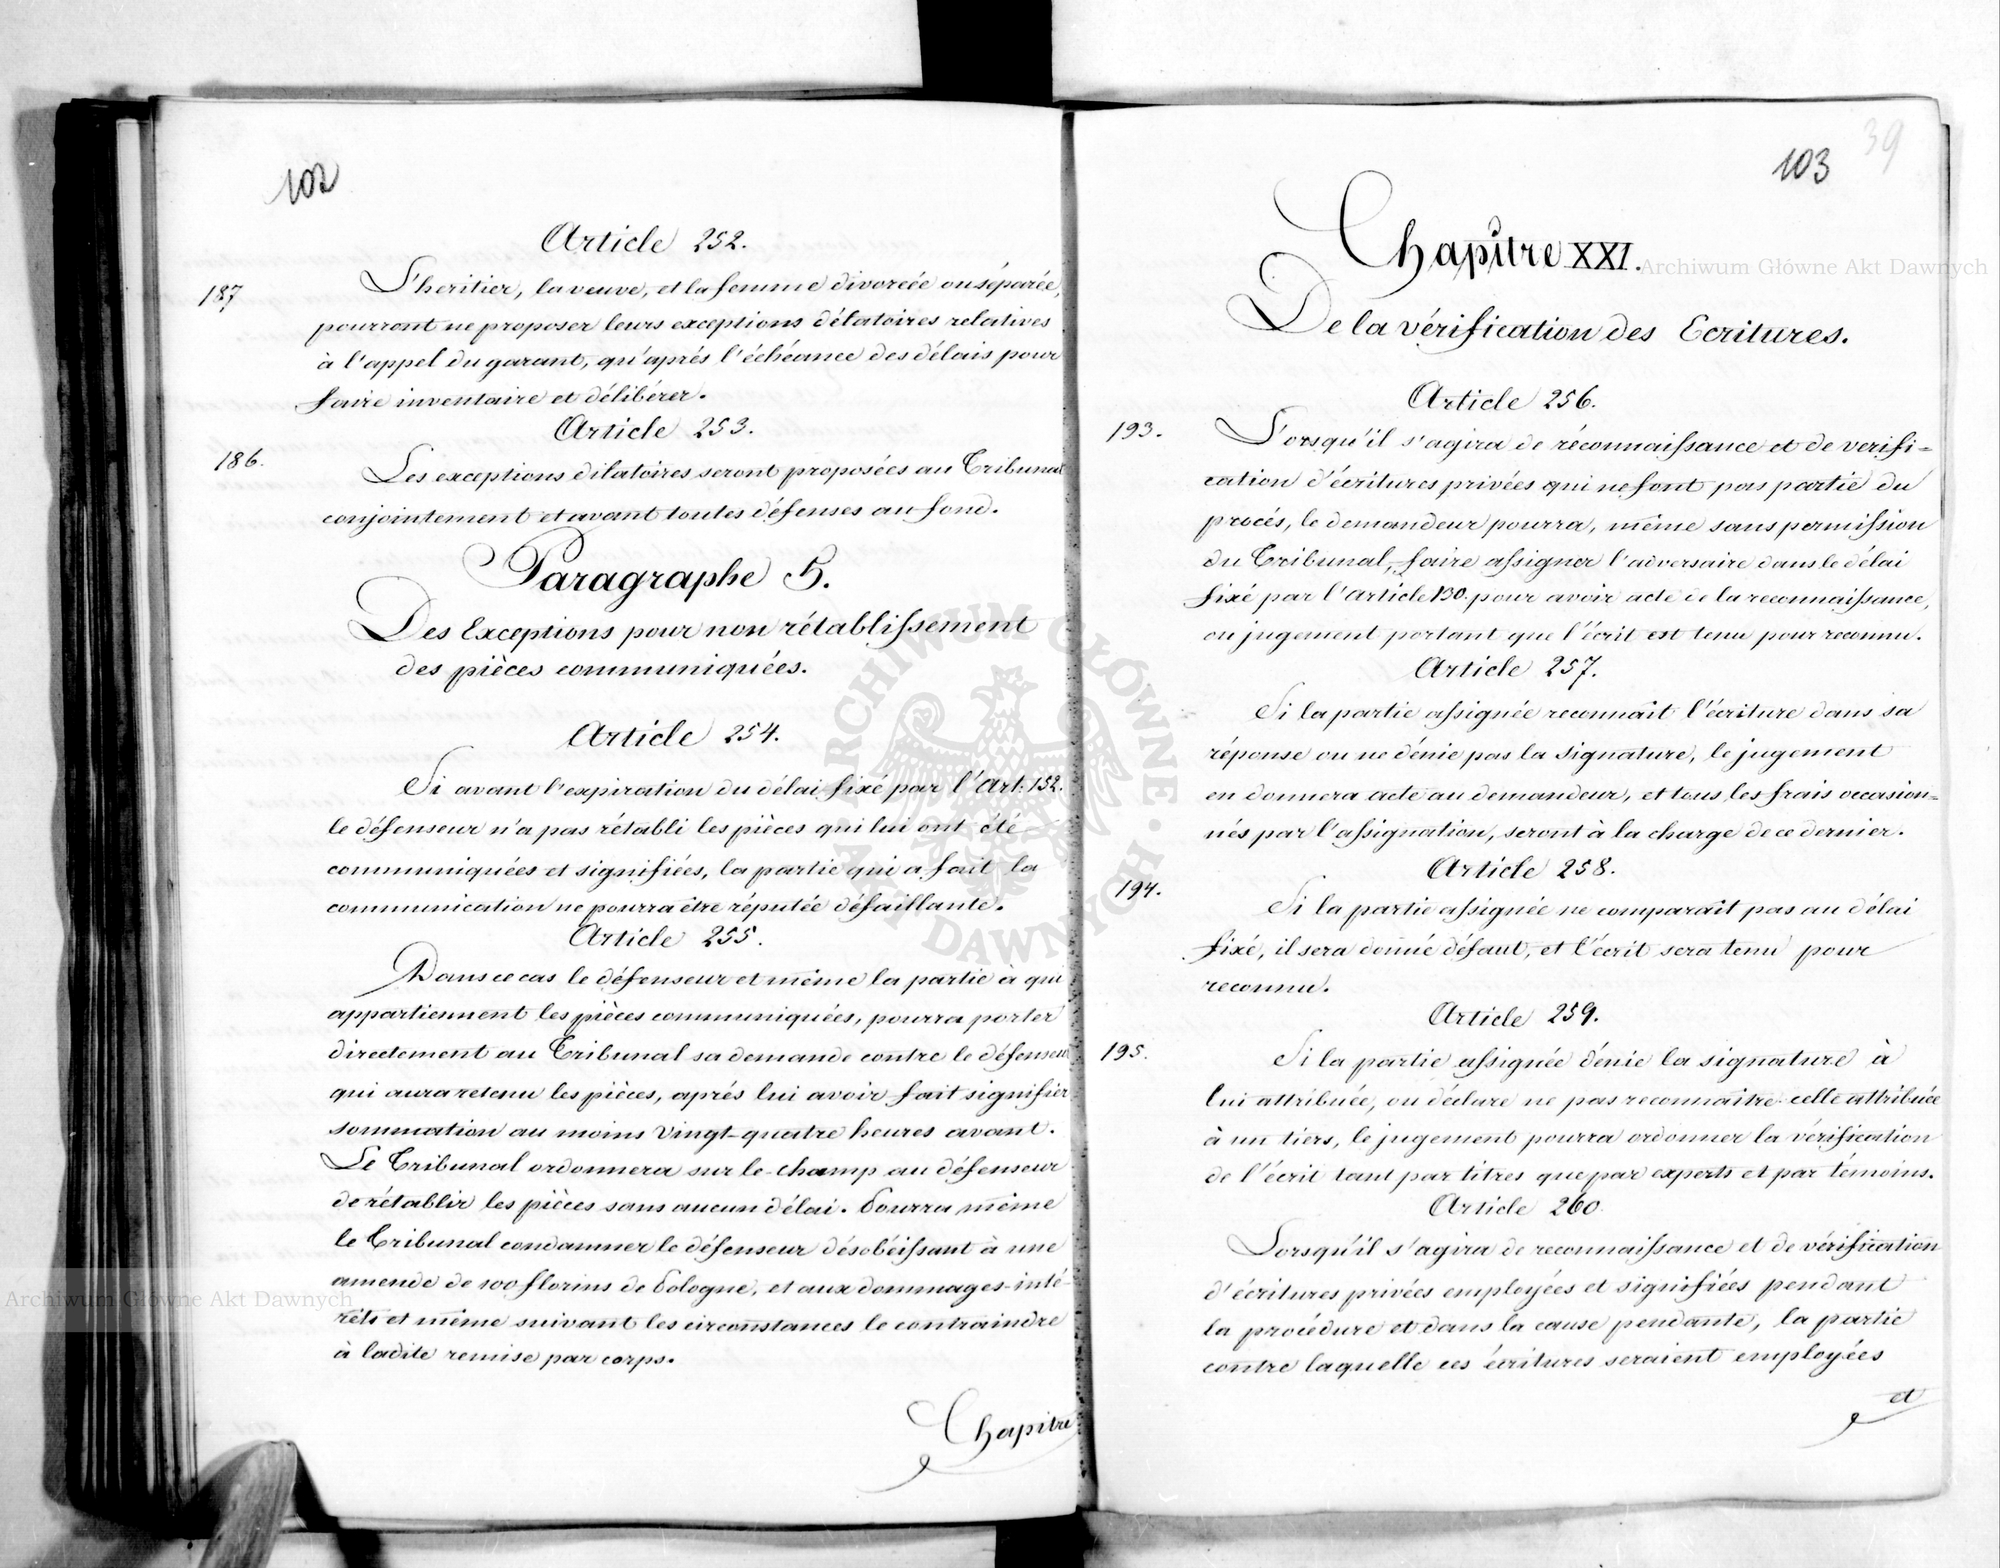 102
Article 252.
187
L'heritier, la veuve, et la femme divorcée ou séparée,
pourront ne proposer leurs exceptions délatoires relatives
à l'appel du garant, qu'aprés l'échéance des délais pour
faire inventaire et délibérer.
Article 253.
186.
Les exceptions dilatoires seront proposées au Tribunal
conjointement et avant toutes défenses au fond.
Paragraphe 5.
Des Exceptions pour non rétablissement
des pièces communiquées.
Article 254.
Si avant l'expiration du délai fixé par l'Art. 152.
le défenseur n'a pas rétabli les pièces qui lui ont été
communiquées et signifiées, la partie qui a fait la
communication ne pourra être réputée défaillante.
Article 255.
Dans ce cas le défenseur et même la partie à qui
appartiennent les pièces communiquées, pourra porter
directement au Tribunal sa demande contre le défenseur
qui aura retenu les pièces, aprés lui avoir fait signifier
sommation au moins vingt-quatre heures avant.
Le Tribunal ordonnera sur le-champ au défenseur
de rétablir les pièces sans aucun délai. Pourra même
le Tribunal condamner le défenseur désobéissant à une
amende de 100 florins de Pologne, et aux dommages-inté-
rêts et même suivant les circonstances le contraindre
à ladite remise par corps.
Chapitre
39
103
Chapitre XXI.
De la vérification des Ecritures.
Article 256.
193.
Lorsqu'il s'agira de réconnaissance et de verifi=
cation d'écritures privées qui ne font pas partie du
procés, le demandeur pourra, même sans permission
du Tribunal, faire assigner l'adversaire dans le délai
fixé par l'article 130. pour avoir acte de la reconnaissance,
ou jugement portant que l'écrit est tenu pour reconnu.
Article 257.
Si la partie assignée reconnaît l'écriture dans sa
réponse ou ne dénie pas la signature, le jugement
en donnera acte au demandeur, et tous les frais occasion=
nés par l'assignation, seront à la charge de ce dernier.
Article 258.
194.
Si la partie assignée ne comparaît pas au délai
fixé, il sera donné défaut, et l'écrit sera tenu pour
reconnu.
Article 259.
195.
Si la partie assignée dénie la signature à
lui attribuée, ou déclare ne pas reconnaitre celle attribuée
à un tiers, le jugement pourra ordonner la vérification
de l'écrit tant par titres que par experts et par témoins.
Article 260.
Lorsqu'il s'agira de reconnaissance et de vérification
d'écritures privées employées et signifiées pendant
la procédure et dans la cause pendante, la partie
contre laquelle ces écritures seraient employées
et
Archiwum Główne Akt Dawnych
Archiwum Główne Akt Dawnych
ARCHIWUM GŁÓWNE AKT DAWNYCH